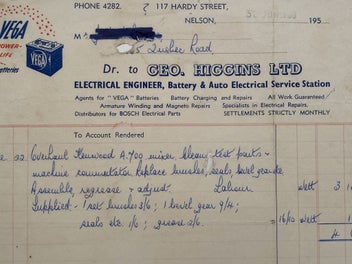 VEGA
POWER-
LIFE
Batteries
VEGA
PHONE 4282. 117 HARDY STREET,
NELSON, 195
M
Quebec Road,
Dr. to GEO. HIGGINS LTD
ELECTRICAL ENGINEER, Battery & Auto Electrical Service Station
Agents for "VEGA" Batteries Battery Charging and Repairs All Work Guaranteed
Armature Winding and Magneto Repairs Specialists in Electrical Repairs,
Distributors for BOSCH Electrical Parts SETTLEMENTS STRICTLY MONTHLY
To Account Rendered
22 Overhaul Kenwood A.700 mixer Cleany test parts +
machine commutator Replace brushes, seals, bevel gear etc
Assemble, regrease & adjust. Labour nett 3
Supplied - 1 set brushes 3/6; 1 bevel gear 9/4;
seals etc. 1/6; grease 2/6. = 16/10 nett